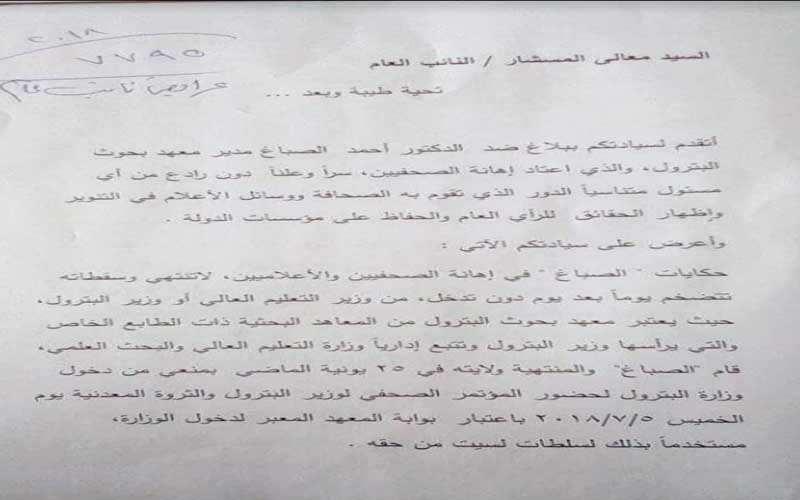 ٢٠١٨
٧٧٩٥
عرائض نائب عام
السيد معالى المستشار / النائب العام
تحية طيبة وبعد ...
أتقدم لسيادتكم ببلاغ ضد الدكتور أحمد الصباغ مدير معهد بحوث
البترول، والذي اعتاد إهانة الصحفيين، سراً وعلناً دون رادع من أي
مسئول متناسياً الدور الذي تقوم به الصحافة ووسائل الأعلام في التنوير
وإظهار الحقائق للرأي العام والحفاظ على مؤسسات الدولة .
وأعرض على سيادتكم الأتي :
حكايات " الصباغ " في إهانة الصحفيين والأعلاميين، لاتنتهي وسقطاته
تتضخم يوماً بعد يوم دون تدخل، من وزير التعليم العالي أو وزير البترول،
حيث يعتبر معهد بحوث البترول من المعاهد البحثية ذات الطابع الخاص
والتي يرأسها وزير البترول وتتبع إدارياً وزارة التعليم العالي والبحث العلمي،
قام "الصباغ" والمنتهية ولايته في ٢٥ يونية الماضي بمنعي من دخول
وزارة البترول لحضور المؤتمر الصحفي لوزير البترول والثروة المعدنية يوم
الخميس ٢٠١٨/٧/٥ باعتبار بوابة المعهد المعبر لدخول الوزارة،
مستخدماً بذلك لسلطات لسيت من حقه .